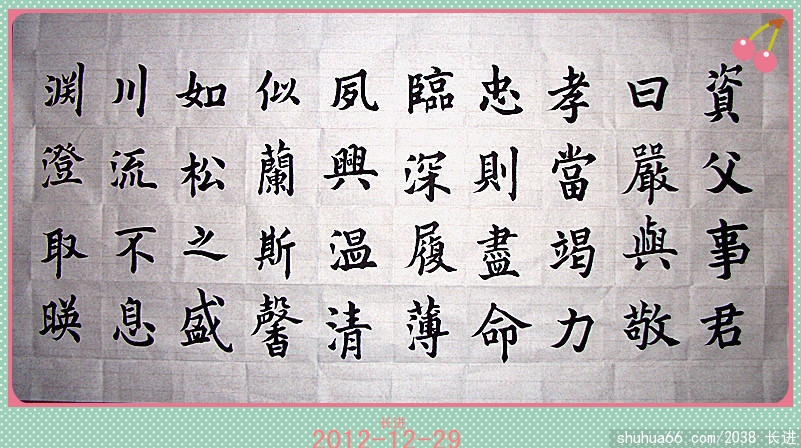 資父事君
曰嚴與敬
孝當竭力
忠則盡命
臨深履薄
夙興温清
似蘭斯馨
如松之盛
川流不息
渊澄取暎
长进
2012-12-29
shuhua66.com/2038 长进